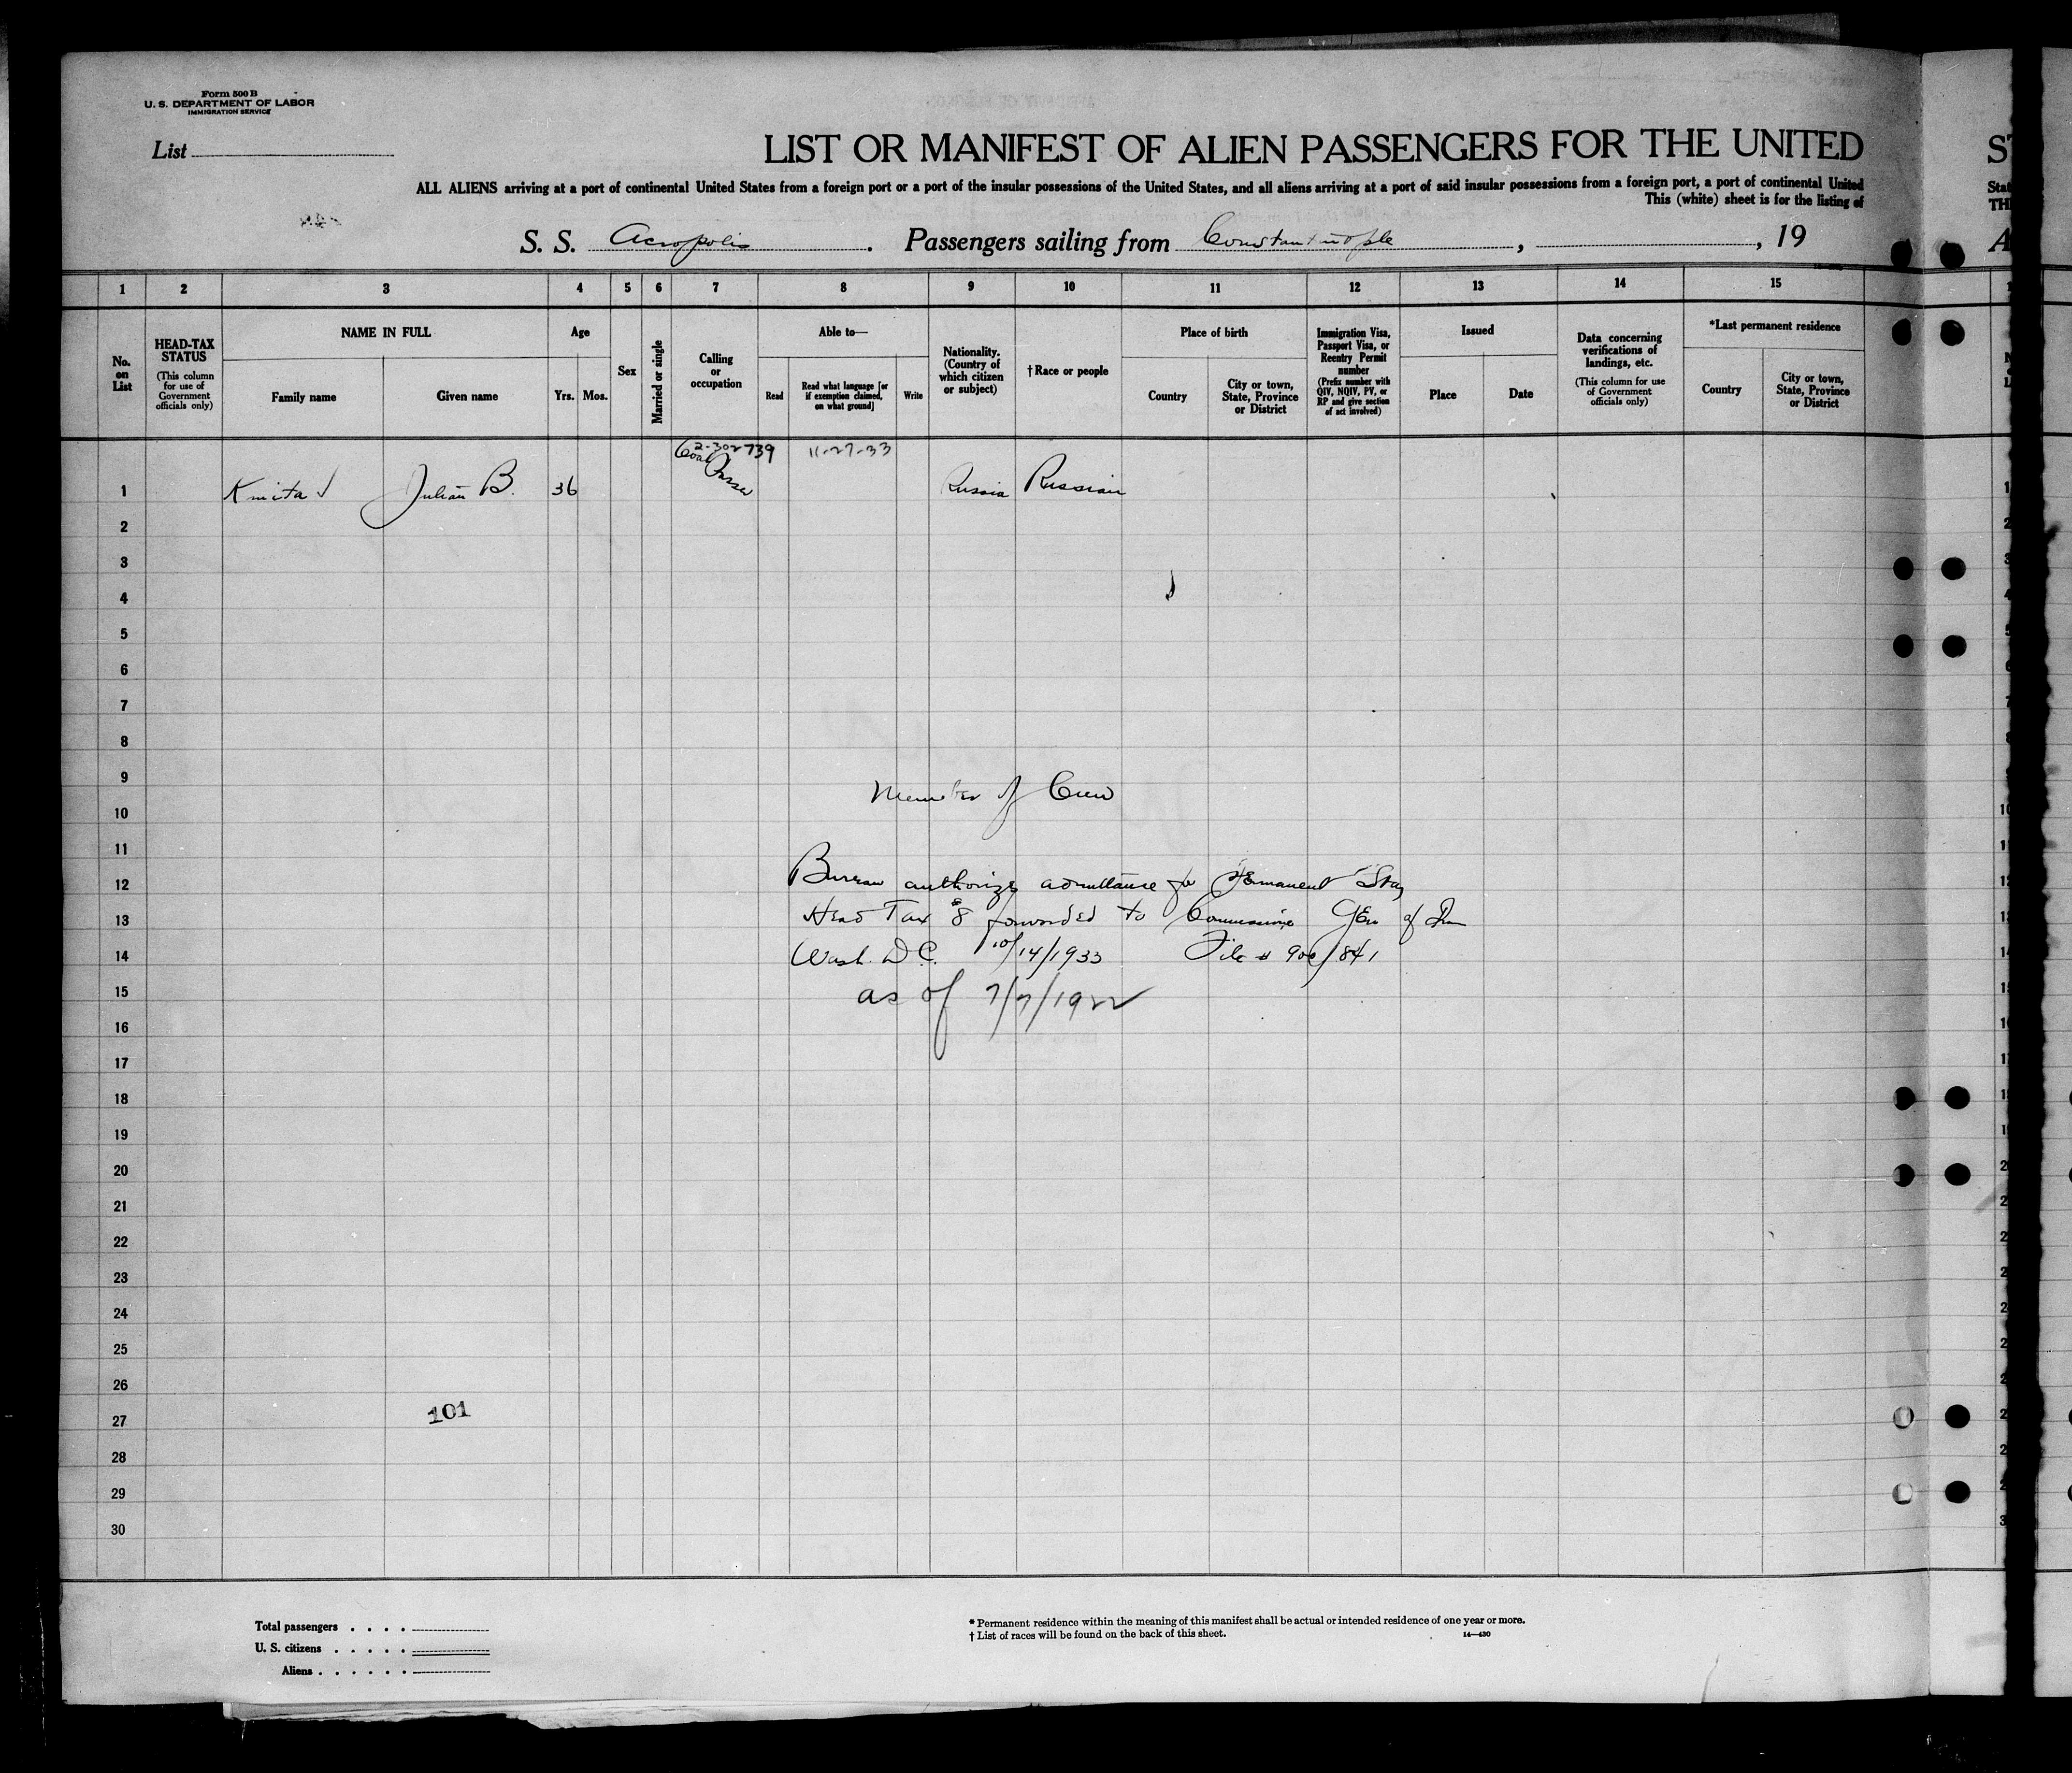 Form 500 B
U. S. DEPARTMENT OF LABOR
IMMIGRATION SERVICE
List
LIST OR MANIFEST OF ALIEN PASSENGERS FOR THE UNITED
ALL ALIENS arriving at a port of continental United States from a foreign port or a port of the insular possessions of the United States, and all aliens arriving at a port of said insular possessions from a foreign port, a port of continental United
This (white) sheet is for the listing of
S. S. Acropolis. Passengers sailing from Constantinople, , 19
1 2 3 4 5 6 7 8 9 10 11 12 13 14 15
No. on List
HEAD-TAX STATUS
(This column for use of Government officials only)
NAME IN FULL
Family name
Given name
Age
Yrs. Mos.
Sex
Married or single
Calling or occupation
Able to—
Read
Read what language [or if exemption claimed, on what ground]
Write
Nationality. (Country of which citizen or subject)
†Race or people
Place of birth
Country
City or town, State, Province or District
Immigration Visa, Passport Visa, or Reentry Permit number
(Prefix number with QIV, NQIV, PV, or RP and give section of act involved)
Issued
Place
Date
Data concerning verifications of landings, etc.
(This column for use of Government officials only)
*Last permanent residence
Country
City or town, State, Province or District
2-302739 11-27-33
1 Kmita Julian B. 36 Coal Passer Russia Russian
2
3
4
5
6
7
8
9
Member of Crew
10
11
12 Bureau authorizes admittance for Permanent Stay
13 Head Tax $8 forwarded to Commissioner Gen of Im
14 Wash. D.C. 10/14/1933 File # 900/841
15 as of 7/7/1922
16
17
18
19
20
21
22
23
24
25
26
27 101
28
29
30
Total passengers
U. S. citizens
Aliens
* Permanent residence within the meaning of this manifest shall be actual or intended residence of one year or more.
† List of races will be found on the back of this sheet.
14—430